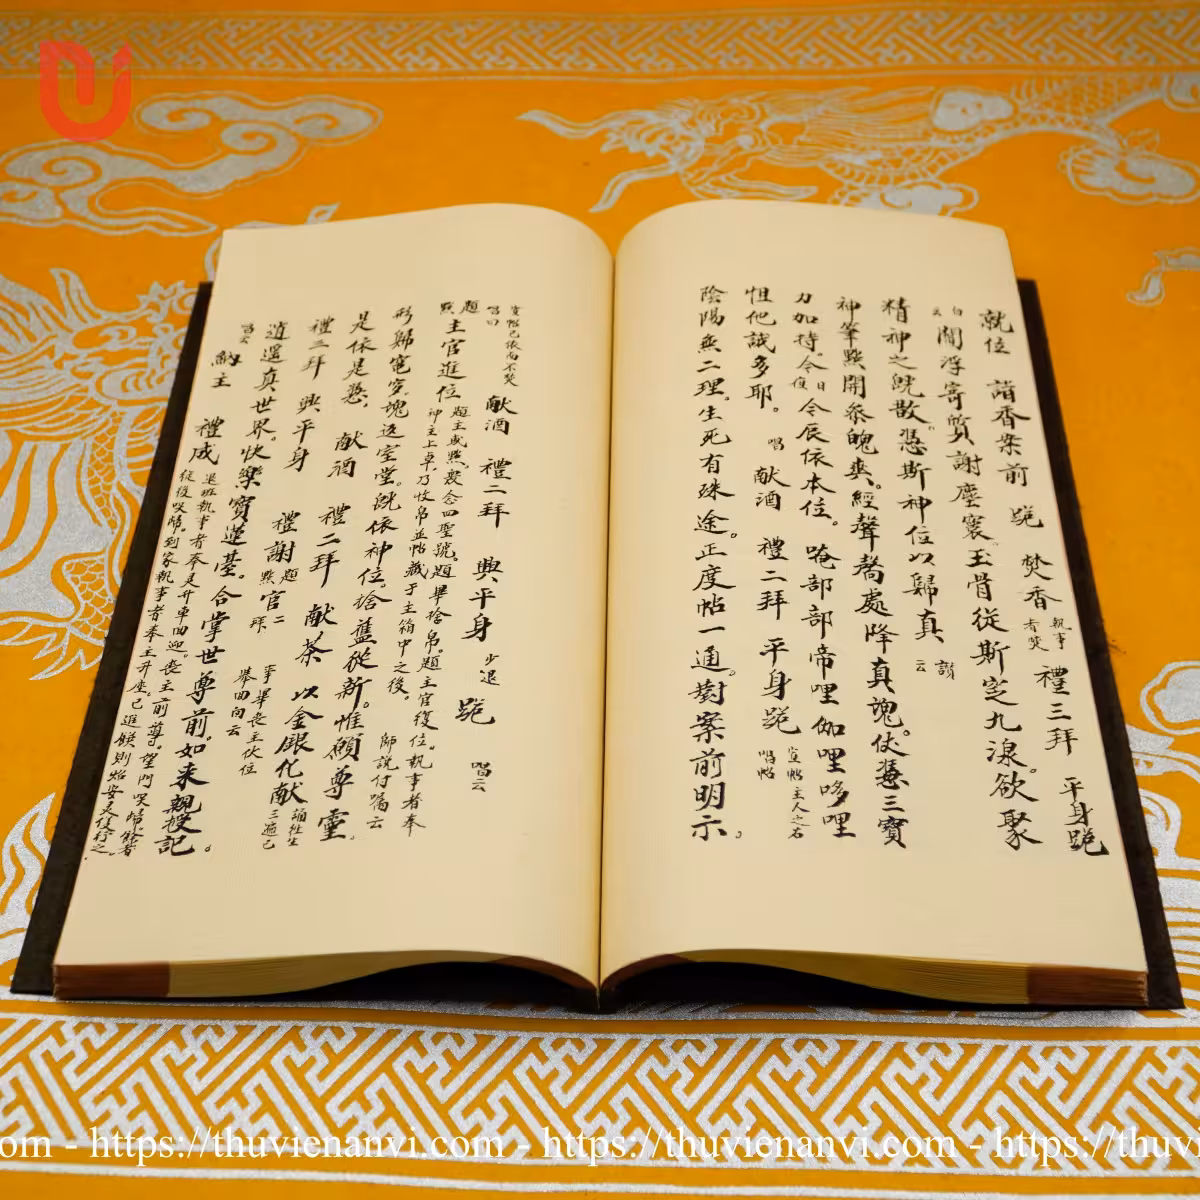 就位 詣香案前 跪 焚香 執事者焚 禮三拜 平身跪
白云 閻浮寄質謝塵寰。玉骨從斯窆九湶。欲聚
精神之魄散。憑斯神位以歸真 云
神筆點開叅魄爽。經聲喬處降真魂。伏憑三寶
力加持。今日夜今辰依本位。唵部部帝哩伽哩哆哩
怛他誐多耶。 唱 献酒 禮二拜 平身跪 宣帖主人之右 唱帖
陰陽無二理。生死有殊途。正度帖一通。對案前明示。
宣帖已依而不焚 唱曰 献酒 禮二拜 興平身 少退 跪 唱云
題點主官進位 題主或點。發念四聖號。題畢捨帛。題主官復位。執事者奉神主上卓。乃收帛並帖藏于主箱中之後。 師說付囑云
形歸窀穸。魂返室堂。既依神位。捨舊從新。惟願尊靈。
是依是憑。 献酒 禮二拜 献茶 以金銀化献 誦往生三遍已
禮三拜 興平身 禮謝題點官二拜 事畢喪主伏位 舉回向云
逍遥真世界。快樂寳蓮臺。合掌世尊前。如来親授記。
唱云 納主 禮成 退班執事者奉灵升車回迎。喪主前尊。望門哭歸。從後哭歸。到家執事者奉主升座。
.com - https://thuvienanvi.com - https://thuvienanvi.com - https://thuvi